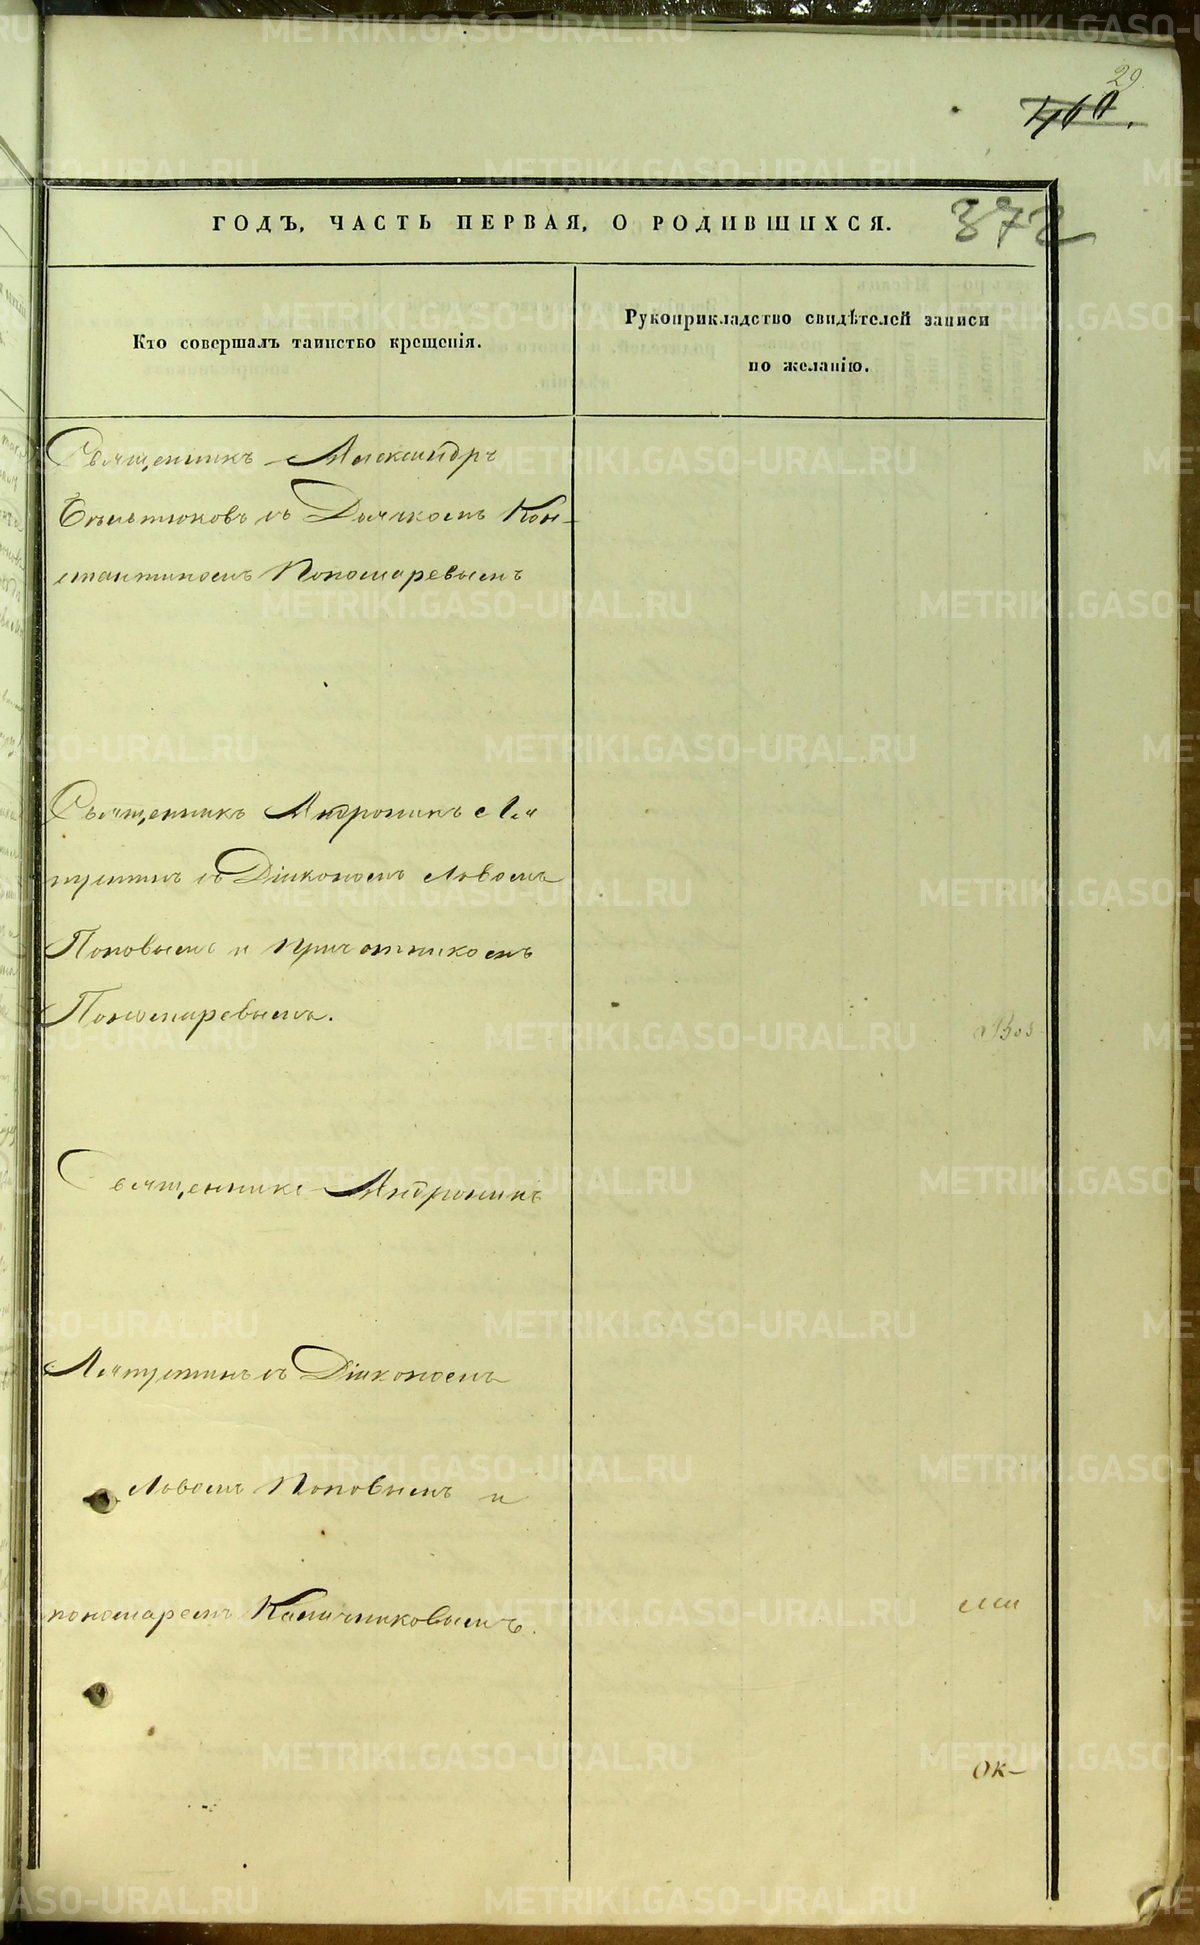 29
460.
372
ГОДЪ, ЧАСТЬ ПЕРВАЯ, О РОДИВШИХСЯ.
Кто совершалъ таинство крещенія.
Рукоприкладство свидѣтелей записи
по желанію.
Священникъ Александръ
съ Дьячкомъ Кон-
стантиномъ Пономаревымъ
Священникъ Андроникъ Ля
пустинъ съ Діакономъ Львомъ
Поповымъ и причотникомъ
Пономаревымъ.
Священникъ Андроникъ
Ляпустинъ съ Діакономъ
Львомъ Поповымъ и
пономаремъ Калачниковымъ.
ок-
METRIKI.GASO-URAL.RU